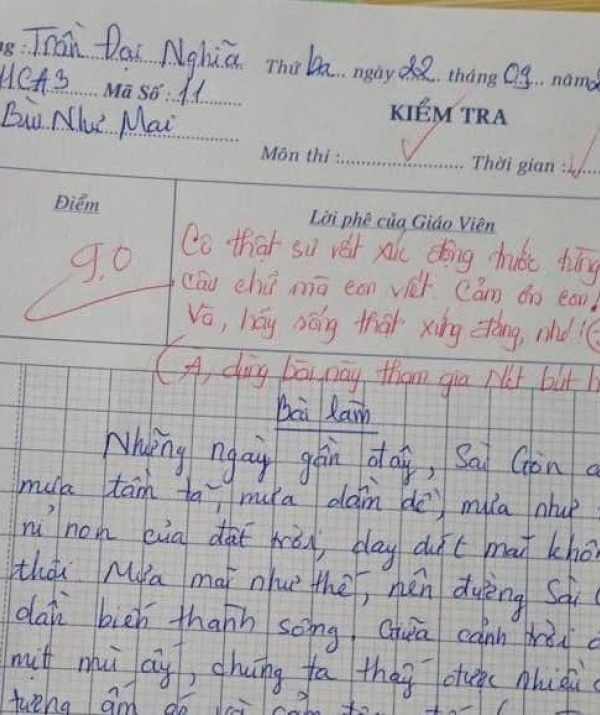 g : Trần Đại Nghĩa Thứ ba ngày 22 tháng 09 năm
11CA3 Mã Số : 11
KIỂM TRA
Bùi Như Mai
Môn thi : Thời gian :
Điểm
Lời phê của Giáo Viên
9.0
Cô thật sự rất xúc động trước từng
câu chữ mà con viết. Cảm ơn con!
Và, hãy sống thật xứng đáng, nhé!
(À, dùng bài này tham gia Nét bút
Bài làm
Những ngày gần đây, Sài Gòn
mưa tầm tã, mưa dầm dề, mưa như
nỉ non của đất trời, day dứt mãi
thôi. Mưa mãi như thế, nên đường Sài
dần biến thành sông. Giữa cảnh trời
mịt mù ấy, chúng ta thấy được nhiều
tượng ấm